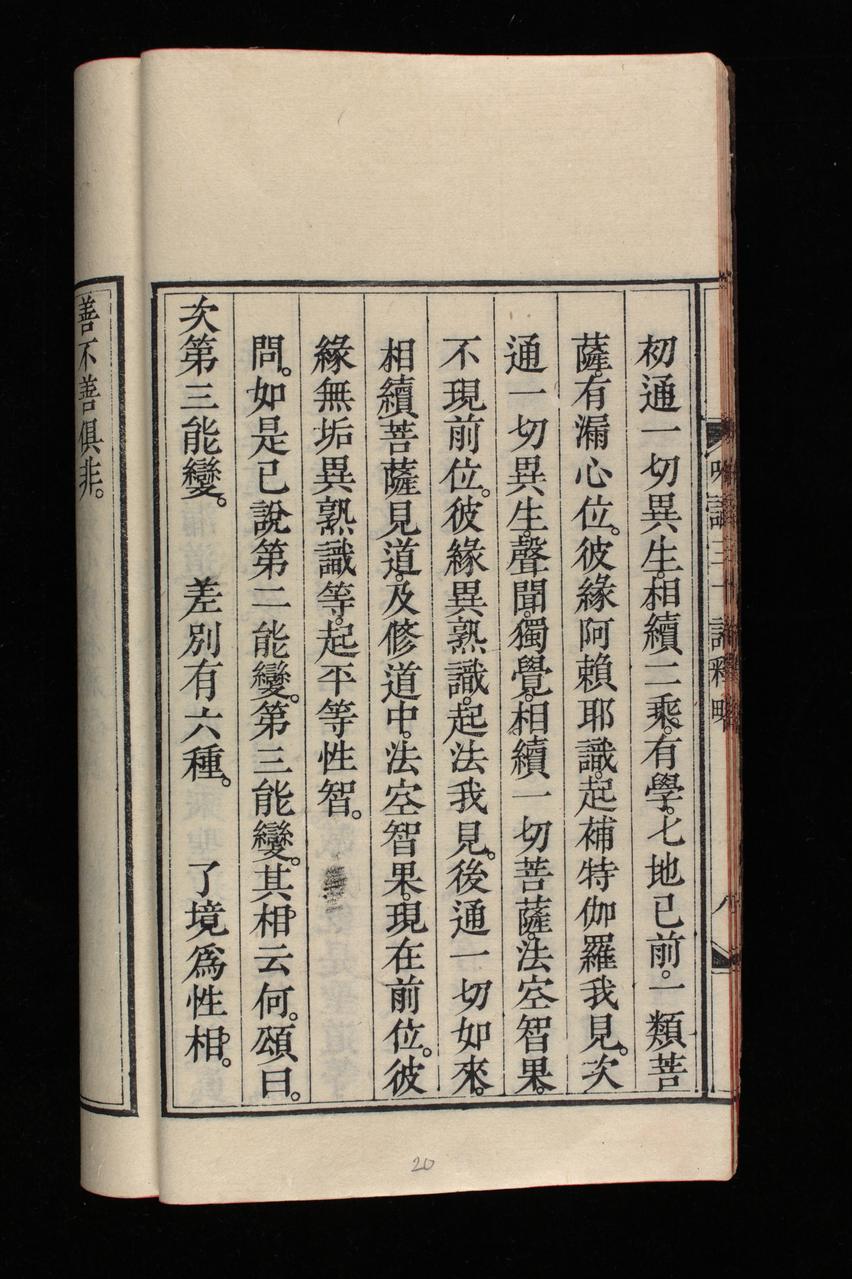 初通一切異生。相續二乘。有學。七地已前。一類菩
薩。有漏心位。彼緣阿賴耶識。起補特伽羅我見。次
通一切異生。聲聞。獨覺。相續一切菩薩。法空智果。
不現前位。彼緣異熟識。起法我見。後通一切如來。
相續菩薩見道。及修道中。法空智果。現在前位。彼
緣無垢異熟識等。起平等性智。
問。如是已說第二能變。第三能變。其相云何。頌曰。
次第三能變。　差別有六種。　了境爲性相。
善不善俱非。
20